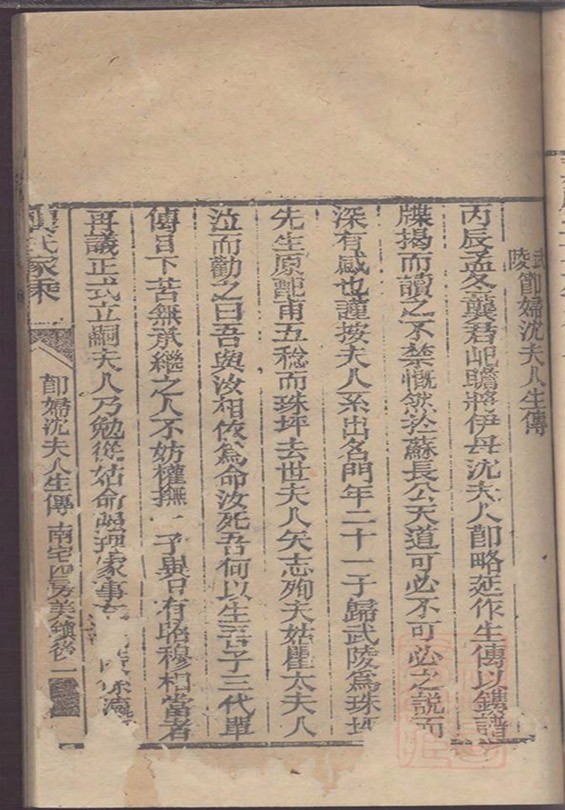 武陵節婦沈夫人生傳
丙辰孟冬龔君屺瞻將伊母沈夫人節略延作生傳以鐫譜
牒揭而讀之不禁慨然於蘇長公天道可必不可必之說而
深有感也謹按夫人系出名門年二十一于歸武陵為珠坪
先生原配甫五稔而珠坪去世夫人矢志殉夫姑瞿太夫人
泣而勸之曰吾與汝相依為命汝死吾何以生吾子三代單
傳目下苦無承繼之人不妨權撫一子異日有昭穆相當者
再議正式立嗣夫人乃勉從姑命 理家事
氏家乘
節婦沈夫人生傳 南宅四房美鎮後 一